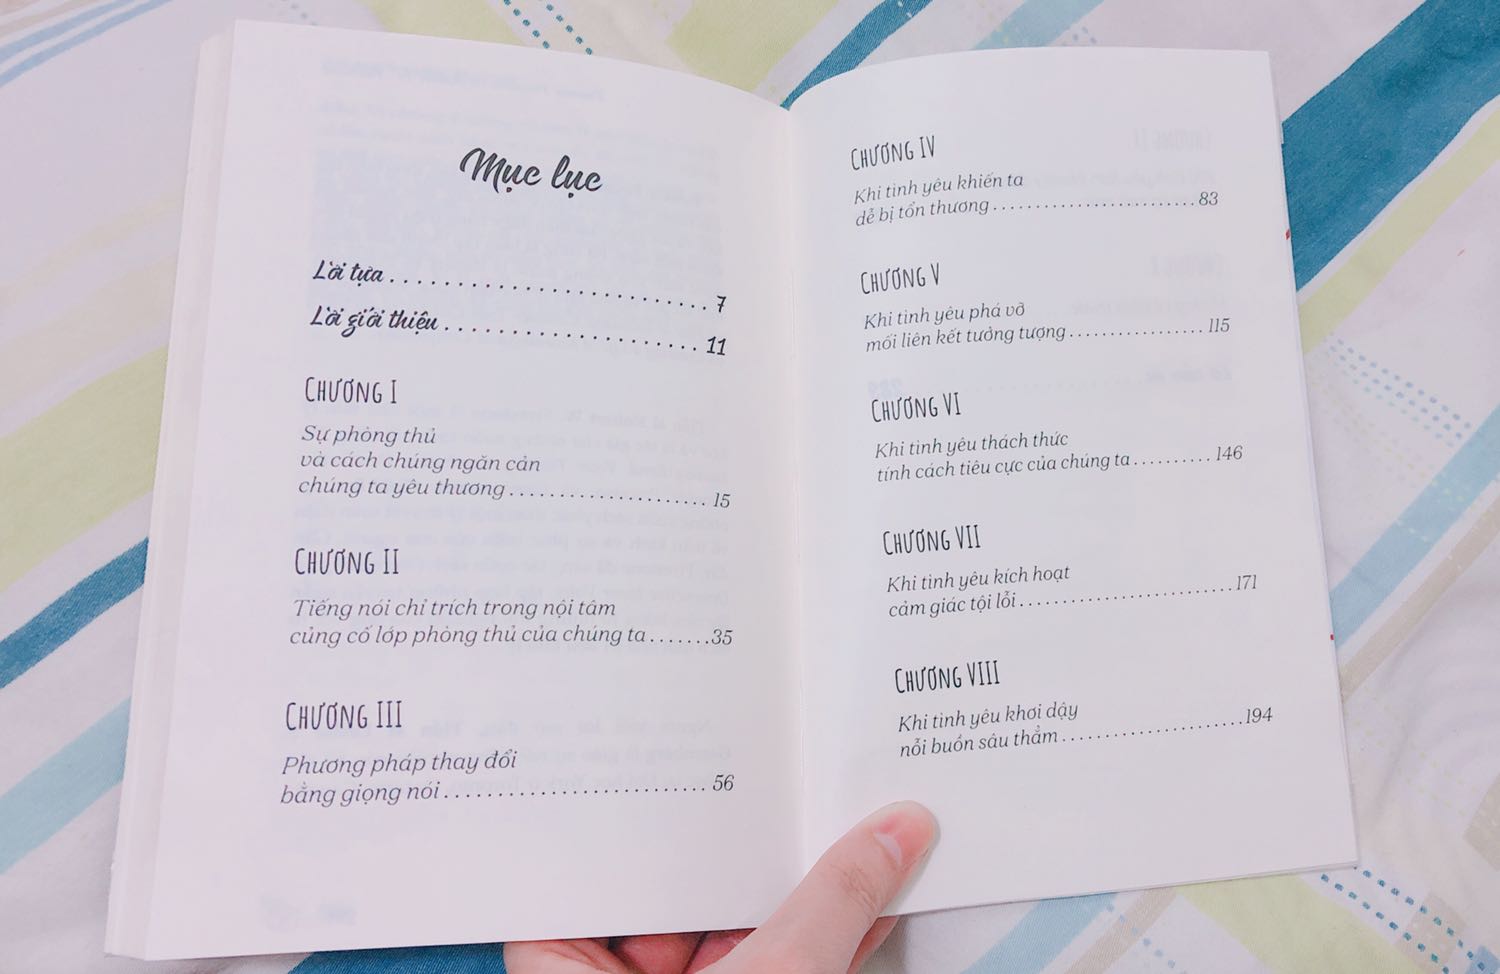 Mục lục
Lời tựa........................7
Lời giới thiệu....................11
CHƯƠNG I
Sự phòng thủ
và cách chúng ngăn cản
chúng ta yêu thương....................15
CHƯƠNG II
Tiếng nói chỉ trích trong nội tâm
củng cố lớp phòng thủ của chúng ta.......35
CHƯƠNG III
Phương pháp thay đổi
bằng giọng nói..........................56
CHƯƠNG IV
Khi tình yêu khiến ta
dễ bị tổn thương........................83
CHƯƠNG V
Khi tình yêu phá vỡ
mối liên kết tưởng tượng................115
CHƯƠNG VI
Khi tình yêu thách thức
tính cách tiêu cực của chúng ta..........146
CHƯƠNG VII
Khi tình yêu kích hoạt
cảm giác tội lỗi.........................171
CHƯƠNG VIII
Khi tình yêu khơi dậy
nỗi buồn sâu thẳm......................194